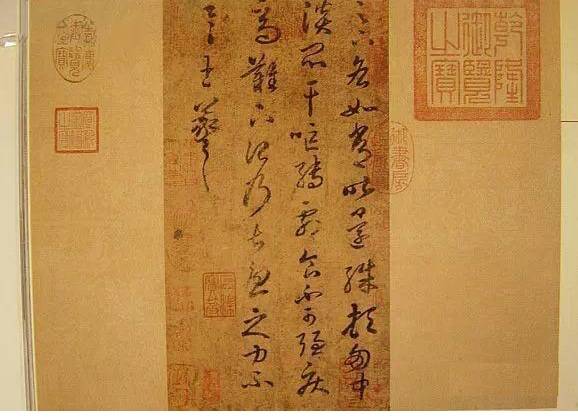 足下各如常昨還殊頓匈中
淡悶干嘔轉劇食不可強疾
高難下治乃甚憂之力不
具王羲之
乾隆御覽之寶
御書房